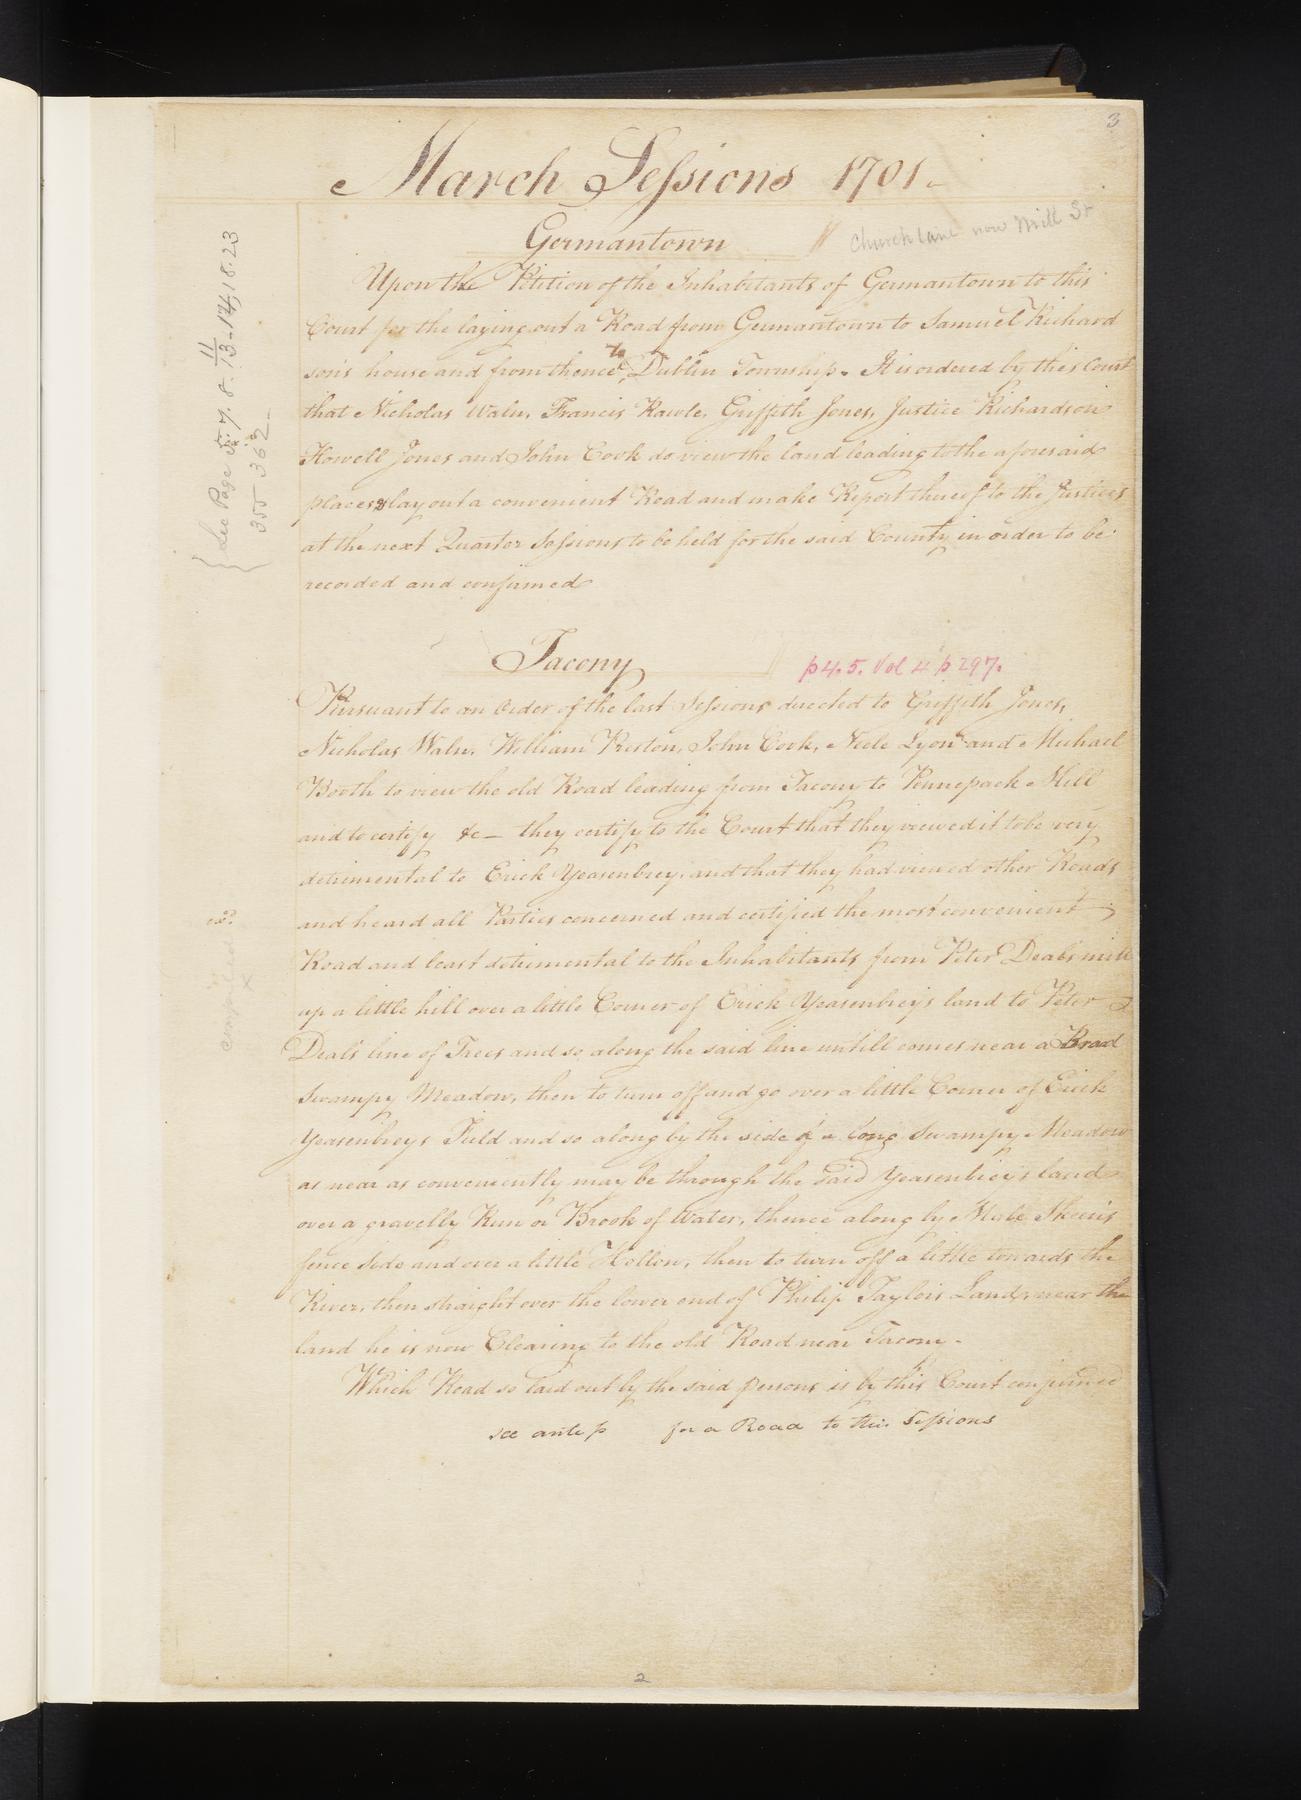 3
March Sessions 1701.
Germantown
Church lane now Mill St
Upon the Petition of the Inhabitants of Germantown to this
Court for the laying out a Road from Germantown to Samuel Richard
sons house and from thence to Dublin Township. It is ordered by this Court
that Nicholas Waln, Francis Rawle, Griffith Jones, Justice Richardson
Howell Jones and John Cook do view the land leading to the aforesaid
places & lay out a convenient Road and make Report thereof to the Justices
at the next Quarter Sessions to be held for the said County in order to be
recorded and confirmed
See Page 5. 7. 8. 11 13-14, 18. 23
355 362
Tacony
p 4. 5. Vol 4 p 297.
Pursuant to an Order of the last Sessions directed to Griffith Jones,
Nicholas Waln, William Preston, John Cook, Neele Lyon and Michael
Booth to view the old Road leading from Tacony to Pennepack Mill
and to certify &c — they certify to the Court that they viewed it to be very
detrimental to Erick Yeasenbrey, and that they had viewed other Roads
and heard all Parties concerned and certified the most convenient
Road and least detrimental to the Inhabitants from Peter Deals mill
up a little hill over a little Corner of Erick Yeasenbreys land to Peter
Deals line of Trees and so along the said line untill comes near a Broad
Swampy Meadow, then to turn off and go over a little Corner of Erick
Yeasenbreys Field and so along by the side of a long Swampy Meadow
as near as conveniently may be through the said Yeasenbreys land
over a gravelly Run or Brook of Water, thence along by
fence side and over a little Hollow, then to turn off a little towards the
River, then straight over the lower end of Philip Taylors Land, near the
land he is now Clearing to the old Road near Tacony.
Which Road so laid out by the said persons is by this Court confirmed
see ante p for a Road to this Sessions
exd.
compared
2